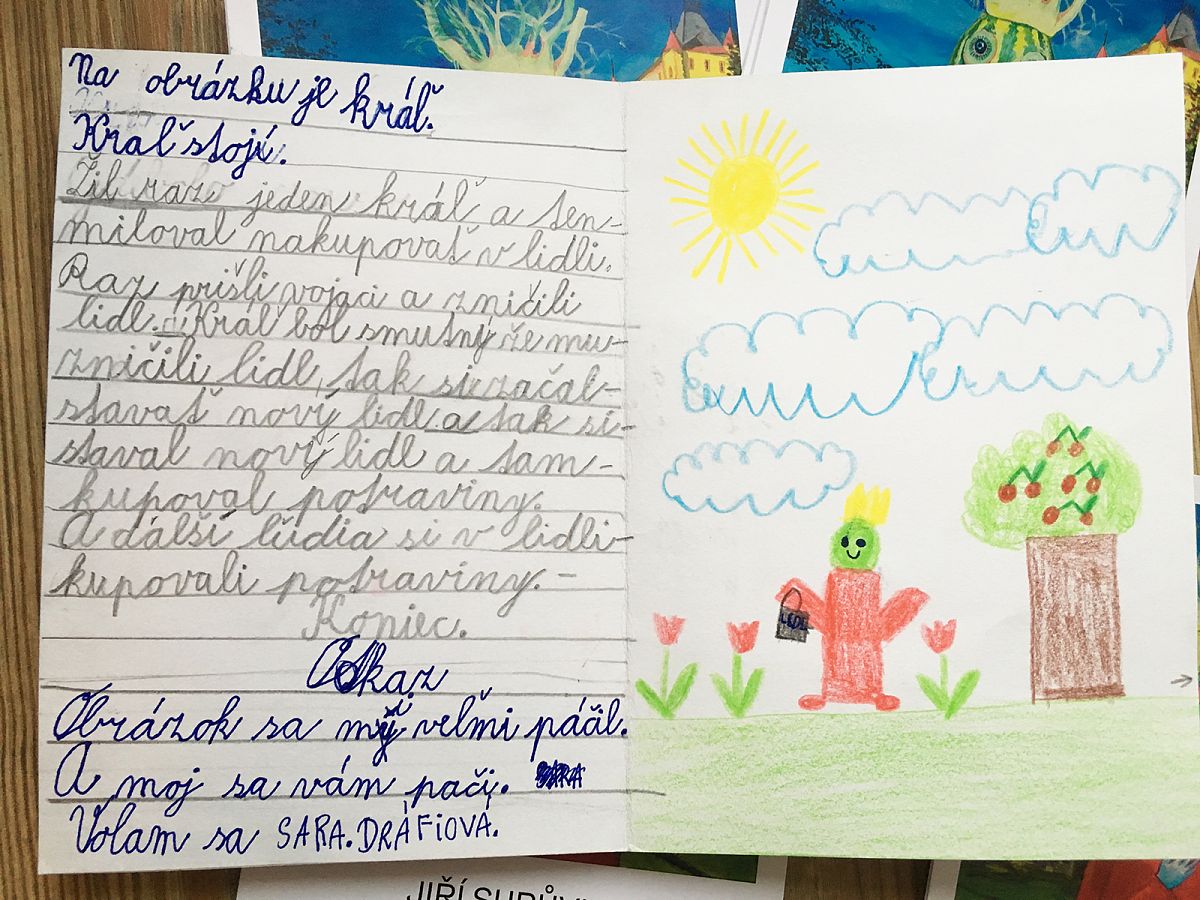 Na obrázku je kráľ.
Kraľ stojí.
Žil raz jeden kráľ a ten-
miloval nakupovať v lidli.
Raz prišli vojaci a zničili
lidl. Kráľ bol smutný že mu-
zničili lidl, tak si začal-
stavať nový lidl a tak si-
staval nový lidl a tam-
kupoval potraviny.
A ďálší ľúdia si v lidli-
kupovali potraviny.-
Koniec.
Odkaz
Obrázok sa mi veľmi páčil.
A moj sa vám pači.
Volam sa SARA.DRÁFIOVÁ.
LIDL